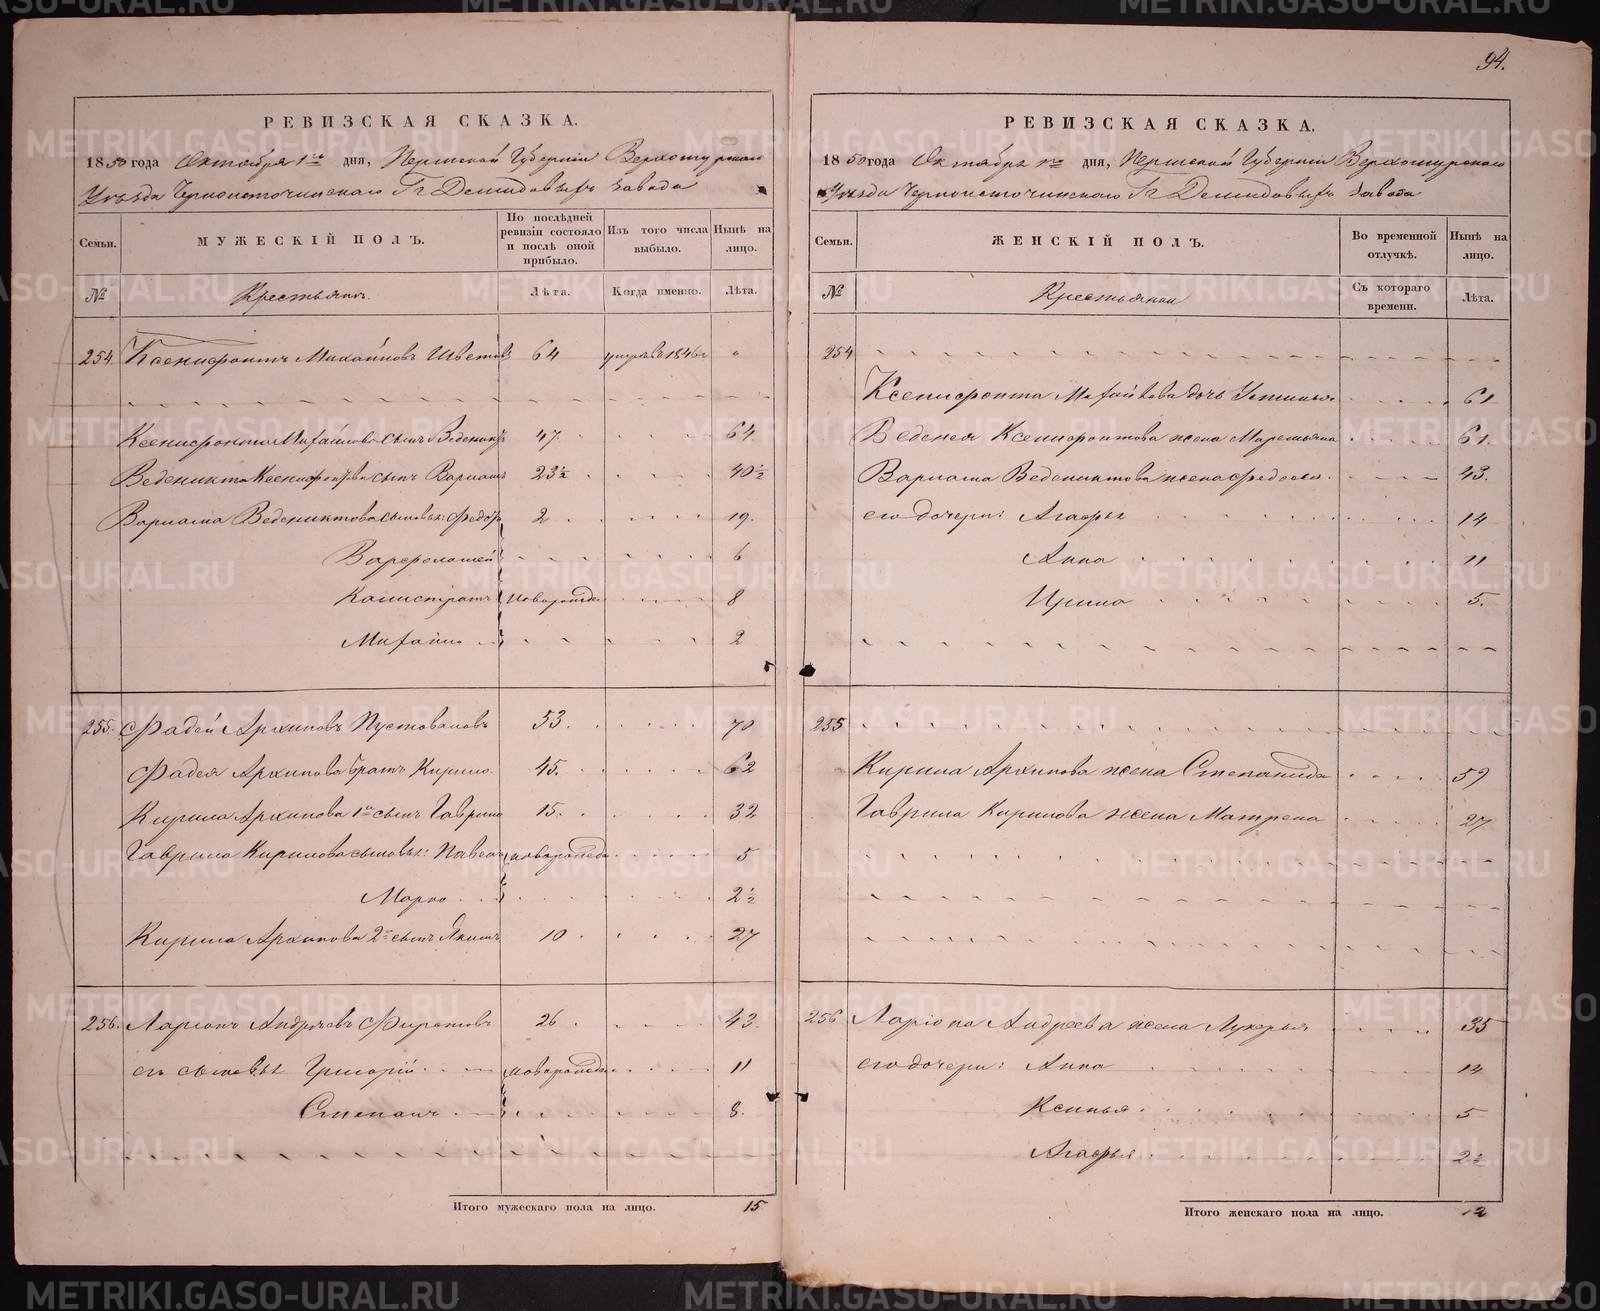 94.
РЕВИЗСКАЯ СКАЗКА.
1850 года Октября 1го дня, Пермской Губерніи Верхотурскаго
Уѣзда Черноисточинскаго Гг Демидовыхъ Завода
Семьи.
МУЖЕСКІЙ ПОЛЪ.
По послѣдней ревизіи состояло и послѣ оной прибыло.
Изъ того числа выбыло.
Нынѣ на лицо.
№
Крестьянъ.
Лѣта.
Когда именно.
Лѣта.
254. Ксенофонтъ Михайловъ Шветовъ 64 умеръ въ 1846г "
Ксенофонта Михайлова сынъ Веденихтъ 47. 64
Веденикта Ксенофонтова сынъ Варламъ 23½ 40½
Варлама Ведениктова сыновья: Федоръ 2 19.
Варфоломей 6
Калистратъ новорожден 8
Михайло 2
255. Фадей Архиповъ Пустоваловъ 53. 70
Фадея Архипова братъ Кирило. 45. 62
Кирила Архипова 1й сынъ Гаврило 15. 32
Гаврила Кирилова сыновья: Павелъ новорожден 5
Марко 2½
Кирила Архипова 2й сынъ Якимъ 10 27
256. Ларіонъ Андрѣевъ Фирстовъ 26 43
его сыновья Григорій новорожден 11
Степанъ 8.
Итого мужескаго пола на лицо. 15
РЕВИЗСКАЯ СКАЗКА.
1850 года Октября 1го дня, Пермской Губерніи Верхотурскаго
Уѣзда Черноисточинскаго Гг Демидовыхъ Завода
Семьи.
ЖЕНСКІЙ ПОЛЪ.
Во временной отлучкѣ.
Нынѣ на лицо.
№
Крестьянки
Съ котораго времени.
Лѣта.
254
Ксенофонта Михайлова дочь Устинья 61
Веденея Ксенофонтова жена Маремьяна 61.
Варлама Ведениктова жена Федосья 43.
его дочери: Агафья 14
Анна 11
Ирина 5.
255
Кирила Архипова жена Степанида 59
Гаврила Кирилова жена Матрена 27
256 Ларіона Андреева жена Лукерья 35
его дочери: Анна 14
Ксинья 5
Агафья 2½
Итого женскаго пола на лицо. 12
METRIKI.GASO-URAL.RU